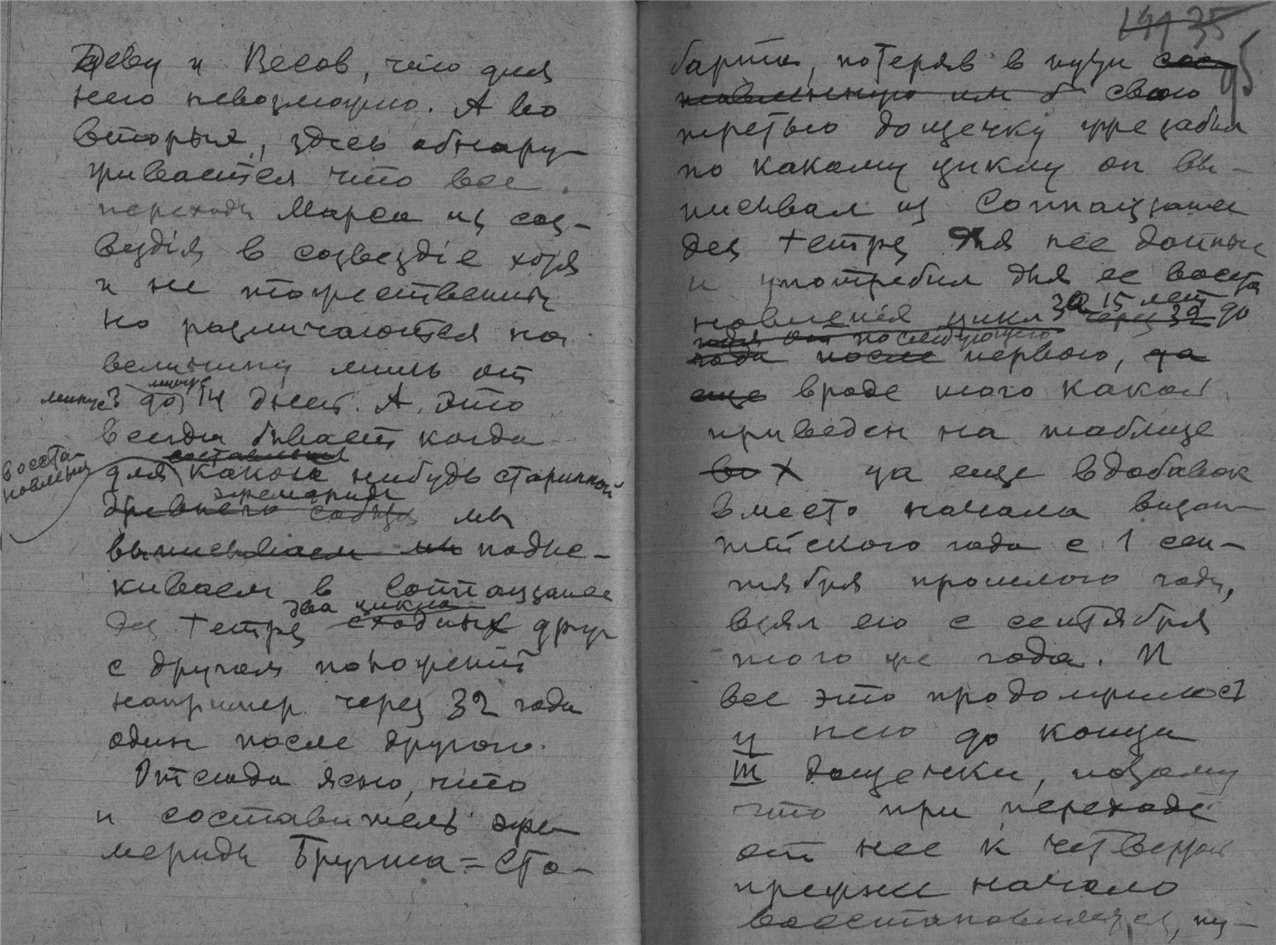 Деву и Весов, что для
него невозможно. А во
вторых, здесь обнару-
живается что все
переходы Марса из соз-
вездія в созвездіе хотя
и не тожественны
но различаются на
величину лишь от
минус 3 до минус 14 дней. А это
всегда бывает когда
для восстановленія составленія какой нибудь старинной
древнего эфемериды мы
выписываем подыс-
киваем в Connaissance
des temps два цикла сходных друг
с другом положений
например через 32 года
один после другого.
Отсюда ясно, что
и составитель эфе-
мериды Бругша-Сто-
1 35
95
барта, потеряв в пути
им свою
третью дощечку и забыл
по какому циклу он вы-
писывал из Connaissance
des temps для нее данные
и употребил для ее восста
новленія цикл за 15 лет через 32 до
года после последующего первого, да
еще вроде того какой
приведен на таблице
X да еще вдобавок
вместо начала визан-
тійского года с 1 сен-
тября прошлого года,
взял его с сентября
того же года. И
все это продолжилось
у него до конца
III дощечки, потому
что при переходе
от нее к четвертой
прежнее начало
восстановляется, пу-